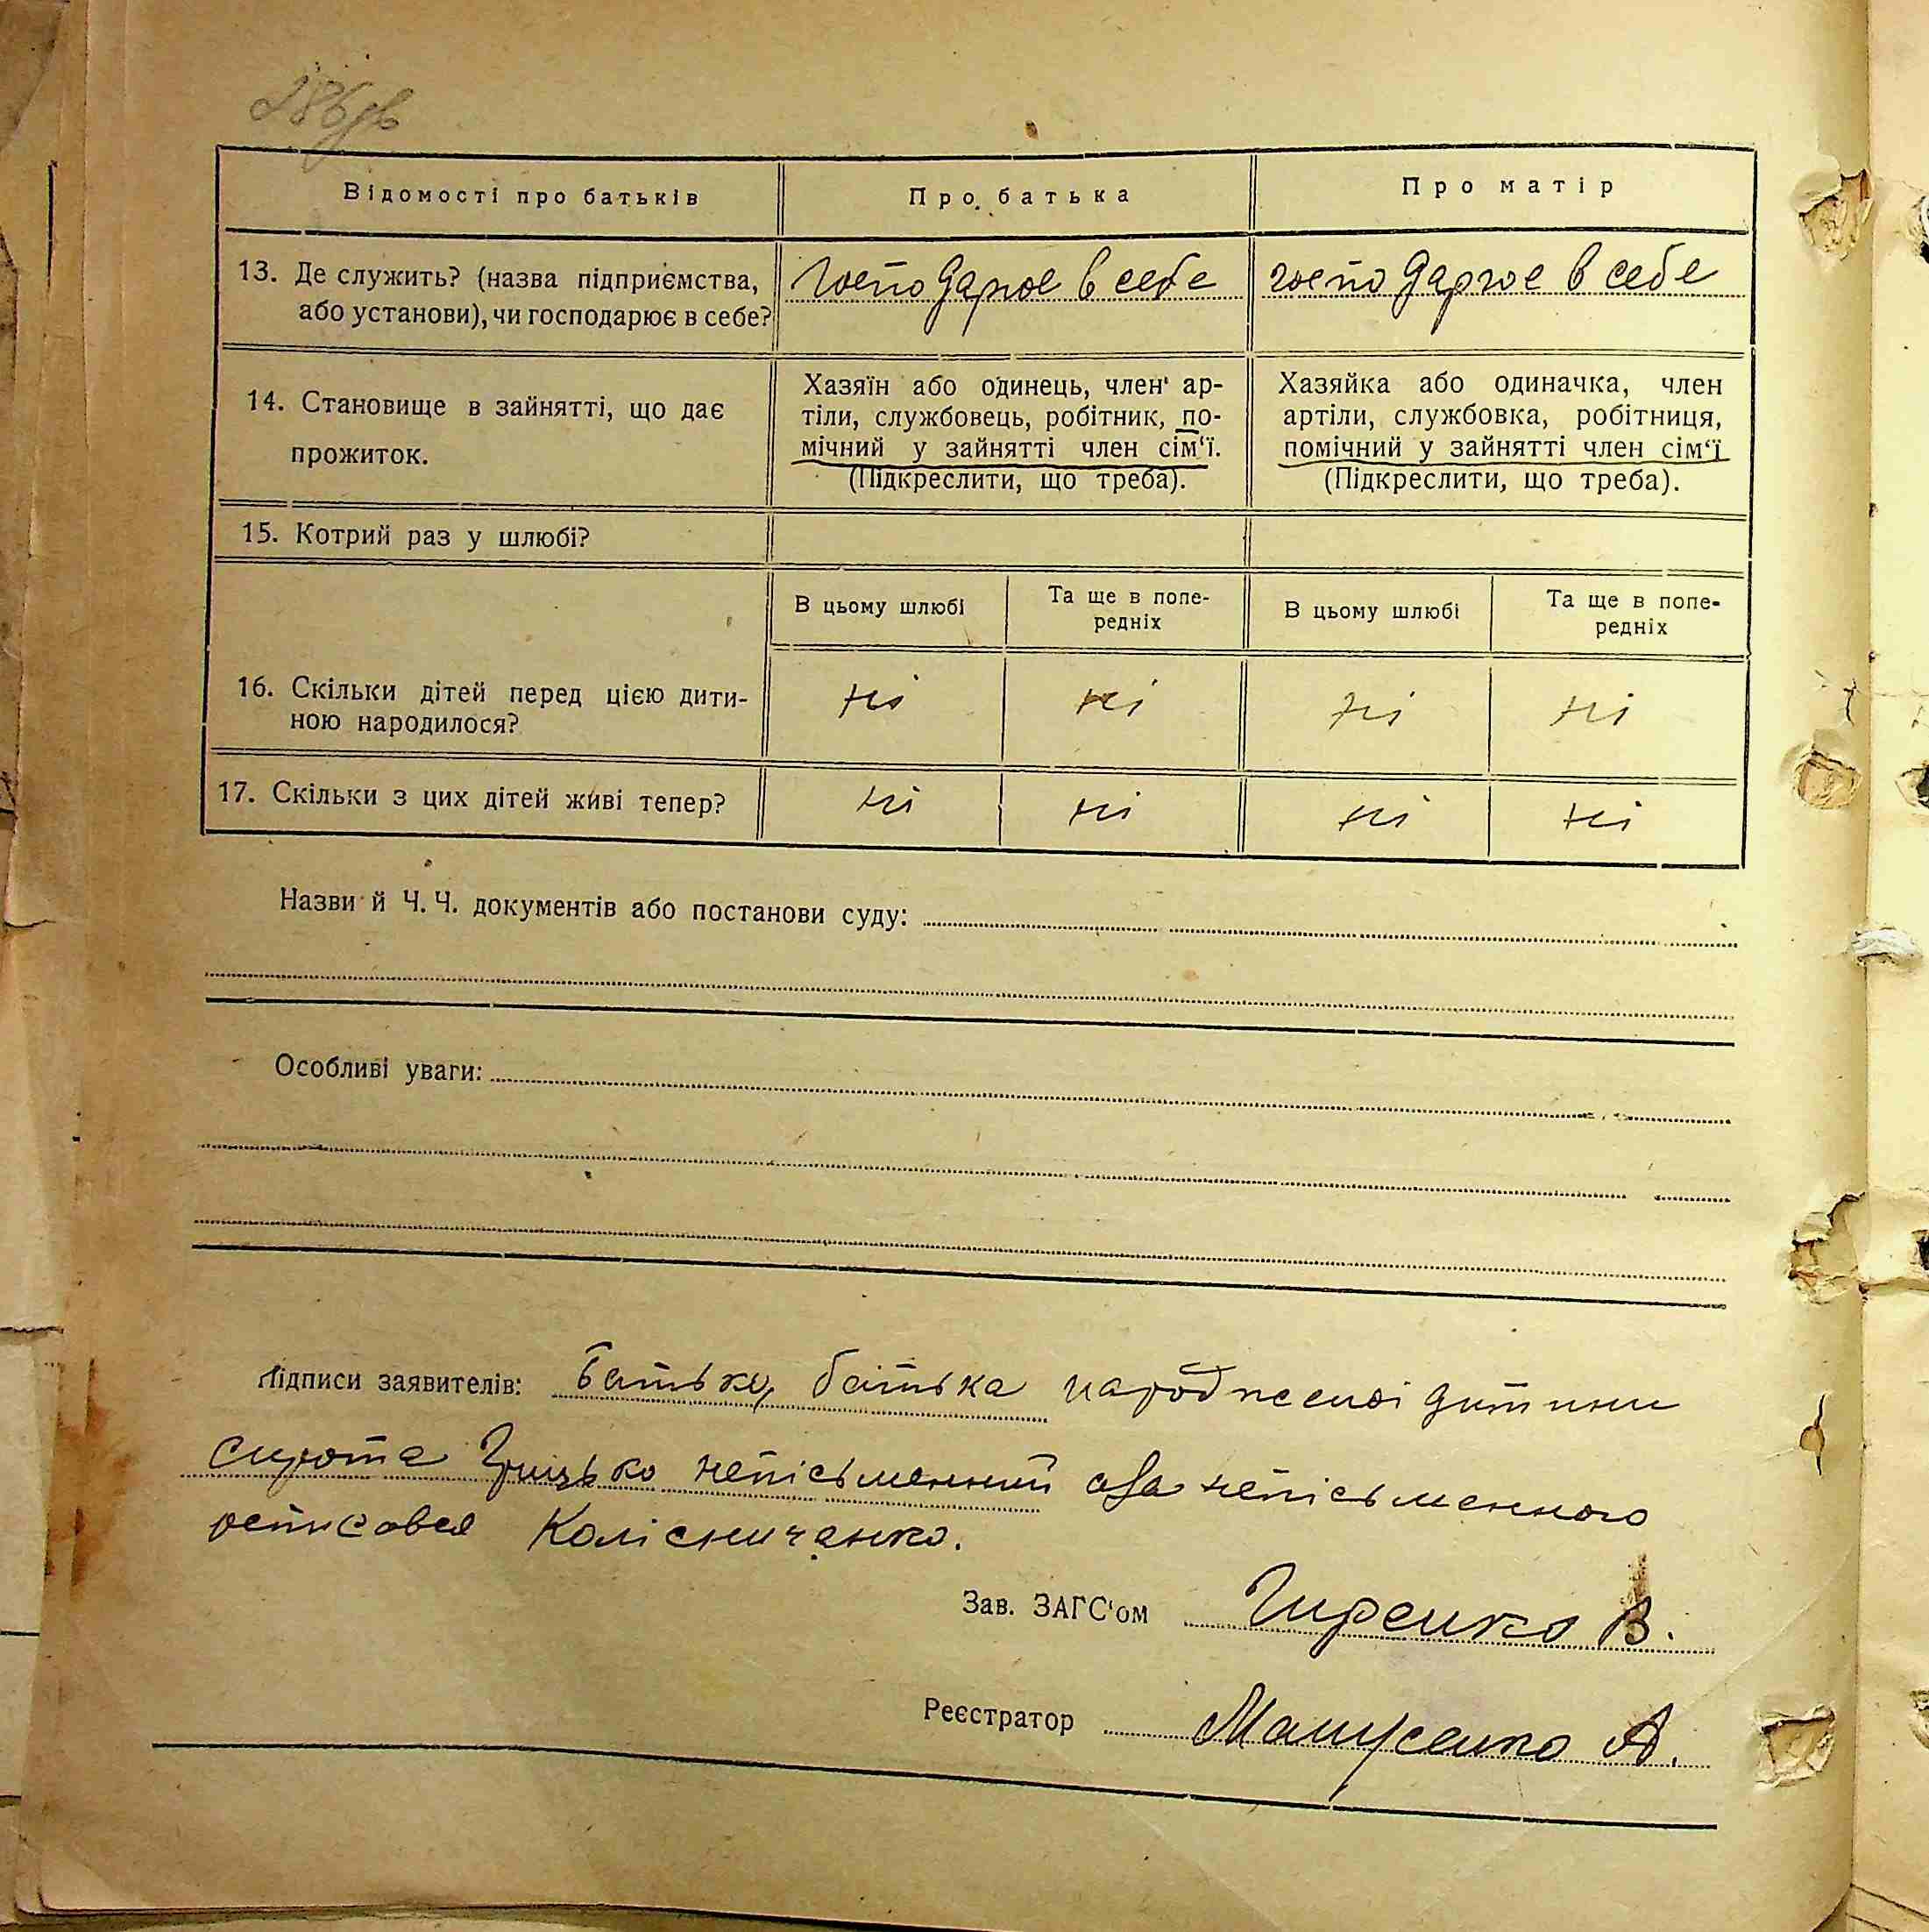 286зв
Відомості про батьків
Про батька
Про матір
13. Де служить? (назва підприємства,
або установи), чи господарює в себе?
господарює в себе
господарює в себе
14. Становище в зайнятті, що дає
прожиток.
Хазяїн або одинець, член ар-
тіли, службовець, робітник, по-
мічний у зайнятті член сім‘ї.
(Підкреслити, що треба).
Хазяйка або одиначка, член
артіли, службовка, робітниця,
помічний у зайнятті член сім‘ї
(Підкреслити, що треба).
15. Котрий раз у шлюбі?
В цьому шлюбі
Та ще в попе-
редніх
В цьому шлюбі
Та ще в попе-
редніх
16. Скільки дітей перед цією дити-
ною народилося?
ні ні ні ні
17. Скільки з цих дітей живі тепер?
ні ні ні ні
Назви й Ч. Ч. документів або постанови суду:
Особливі уваги:
Підписи заявителів: батько батька народженої дитини
Сирота Грицько непісьменний а за непісьменного
росписався Колісниченко.
Зав. ЗАГС‘ом Гиренко В.
Реєстратор А.